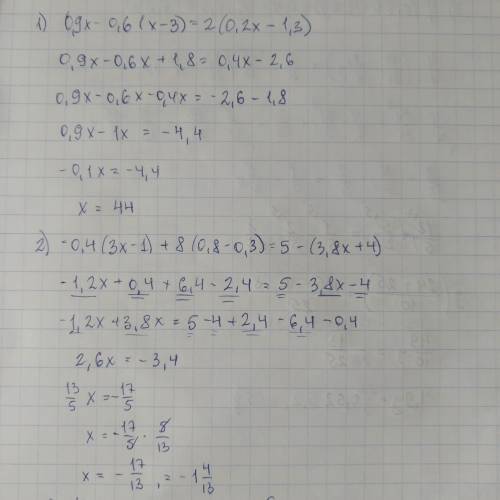 1) 0,9x - 0,6 (x-3) = 2 (0,2x - 1,3)
0,9x - 0,6x + 1,8 = 0,4x - 2,6
0,9x - 0,6x - 0,4x = -2,6 - 1,8
0,9x - 1x = -4,4
-0,1x = -4,4
x = 44
2) -0,4 (3x-1) + 8 (0,8-0,3) = 5 - (3,8x+4)
-1,2x + 0,4 + 6,4 - 2,4 = 5 - 3,8x - 4
-1,2x + 3,8x = 5 - 4 + 2,4 - 6,4 - 0,4
2,6x = -3,4
13/5 x = -17/5
x = -17/5 · 5/13
x = -17/13 , = -1 4/13